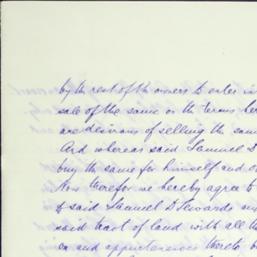 by the rest of the owners to enter in
sale of the same on the terms her
are desirous of selling the same
And whereas said Samuel D
buy the same for himself and o
Now therefor we hereby agree to
of said Samuel D Edwards
said tract of land with all th
and appurtenances thereto b